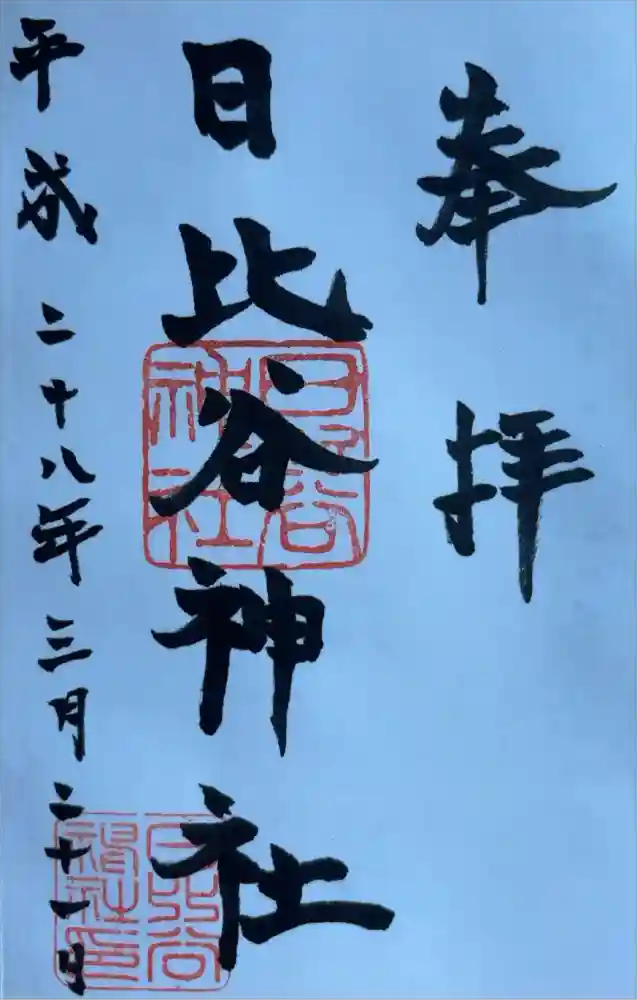 奉拝
日比谷神社
平成二十八年三月二十一日
日比谷
神社
日比谷
神社印